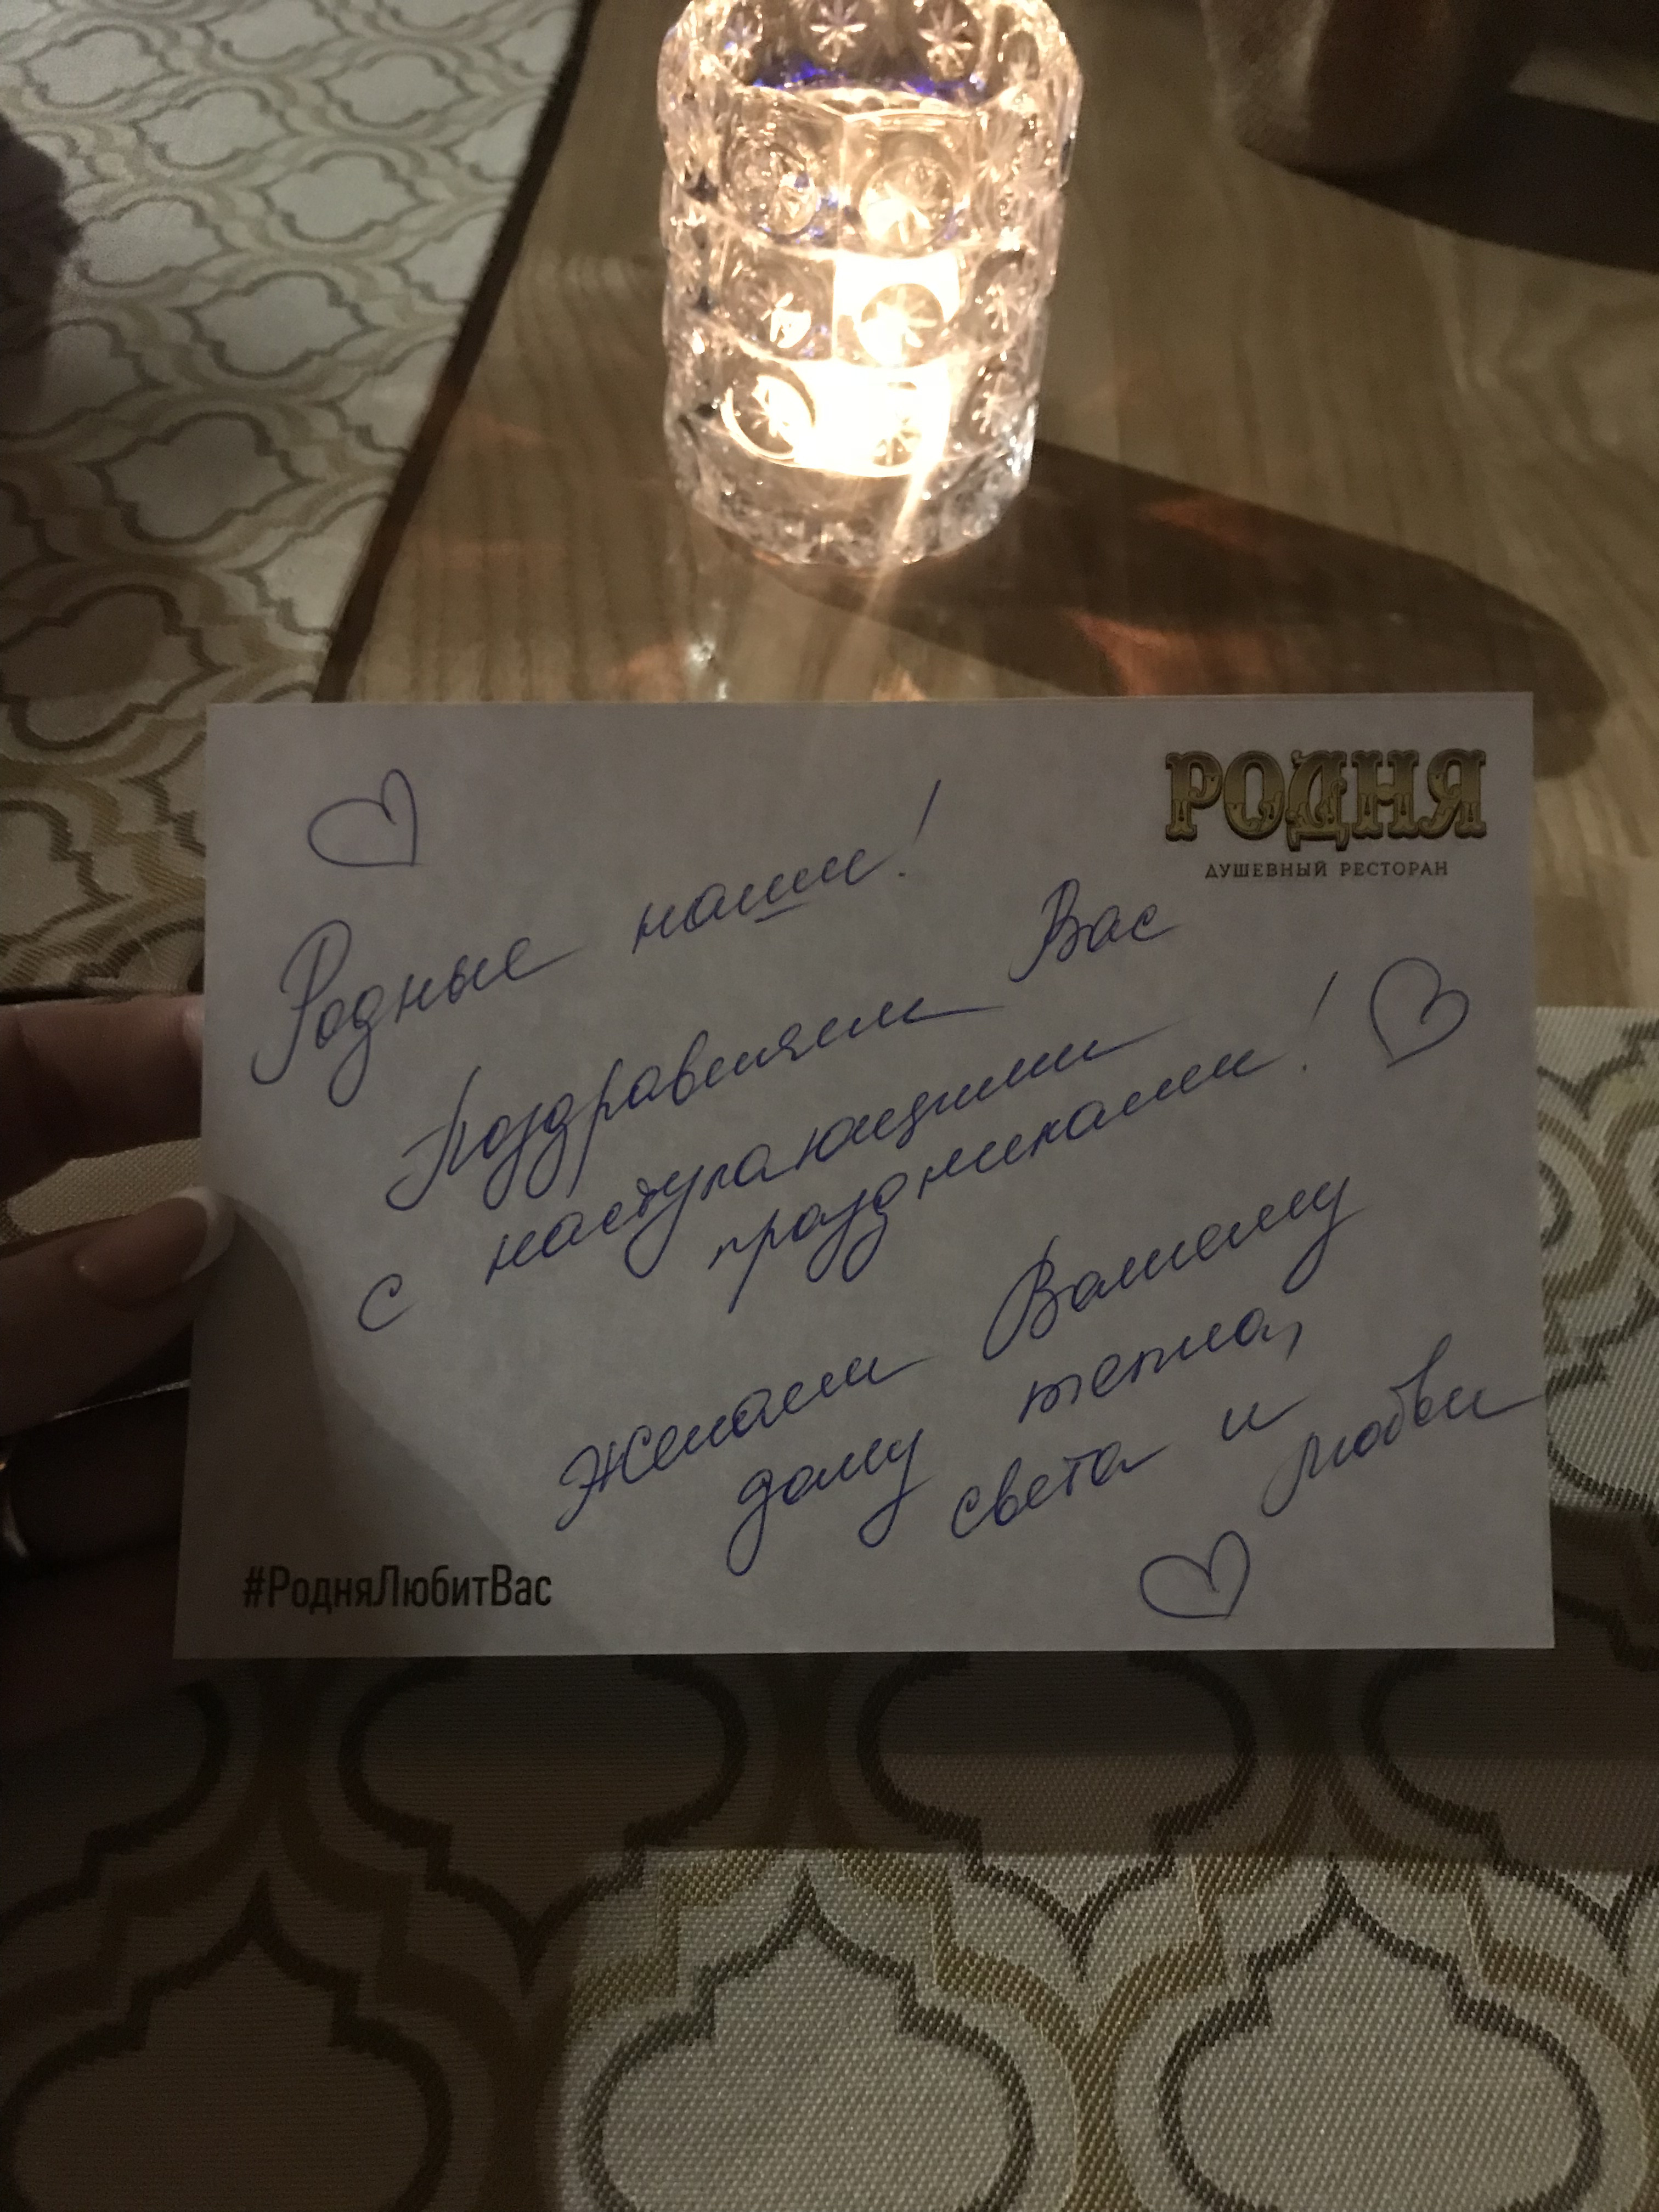 РОДНЯ
ДУШЕВНЫЙ РЕСТОРАН
Родные наши!
Поздравляем Вас
с наступающими
праздниками!
Желаем Вашему
дому тепла,
света и
любви
#РодняЛюбитВас